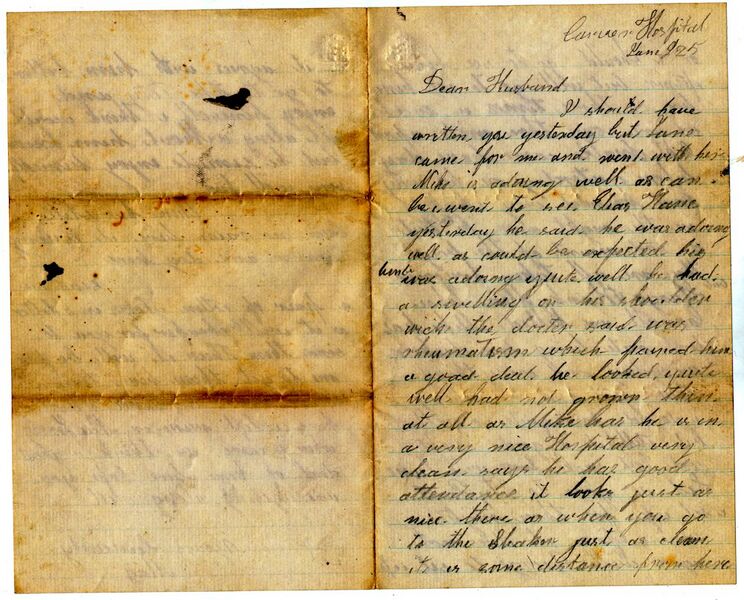 Carver Hospital
June 25
Dear Husband
I should have
written you yesterday but Jane
came for me and went with her
Mike is adoing well as can
be. went to see Chas Kane
yesterday he said he was adoing
well as could be expected his
limb was adoing quite well he had
a swelling on his shoulder
wich the docter said was
rheumatism which pained him
a good deal he looked quite
well had not grown thin
at all as Mike has he is in
a very nice Hospital very
clean says he has good
attendance it looks just as
nice there as when you go
to the Shaker just as clean
it is some distance from here